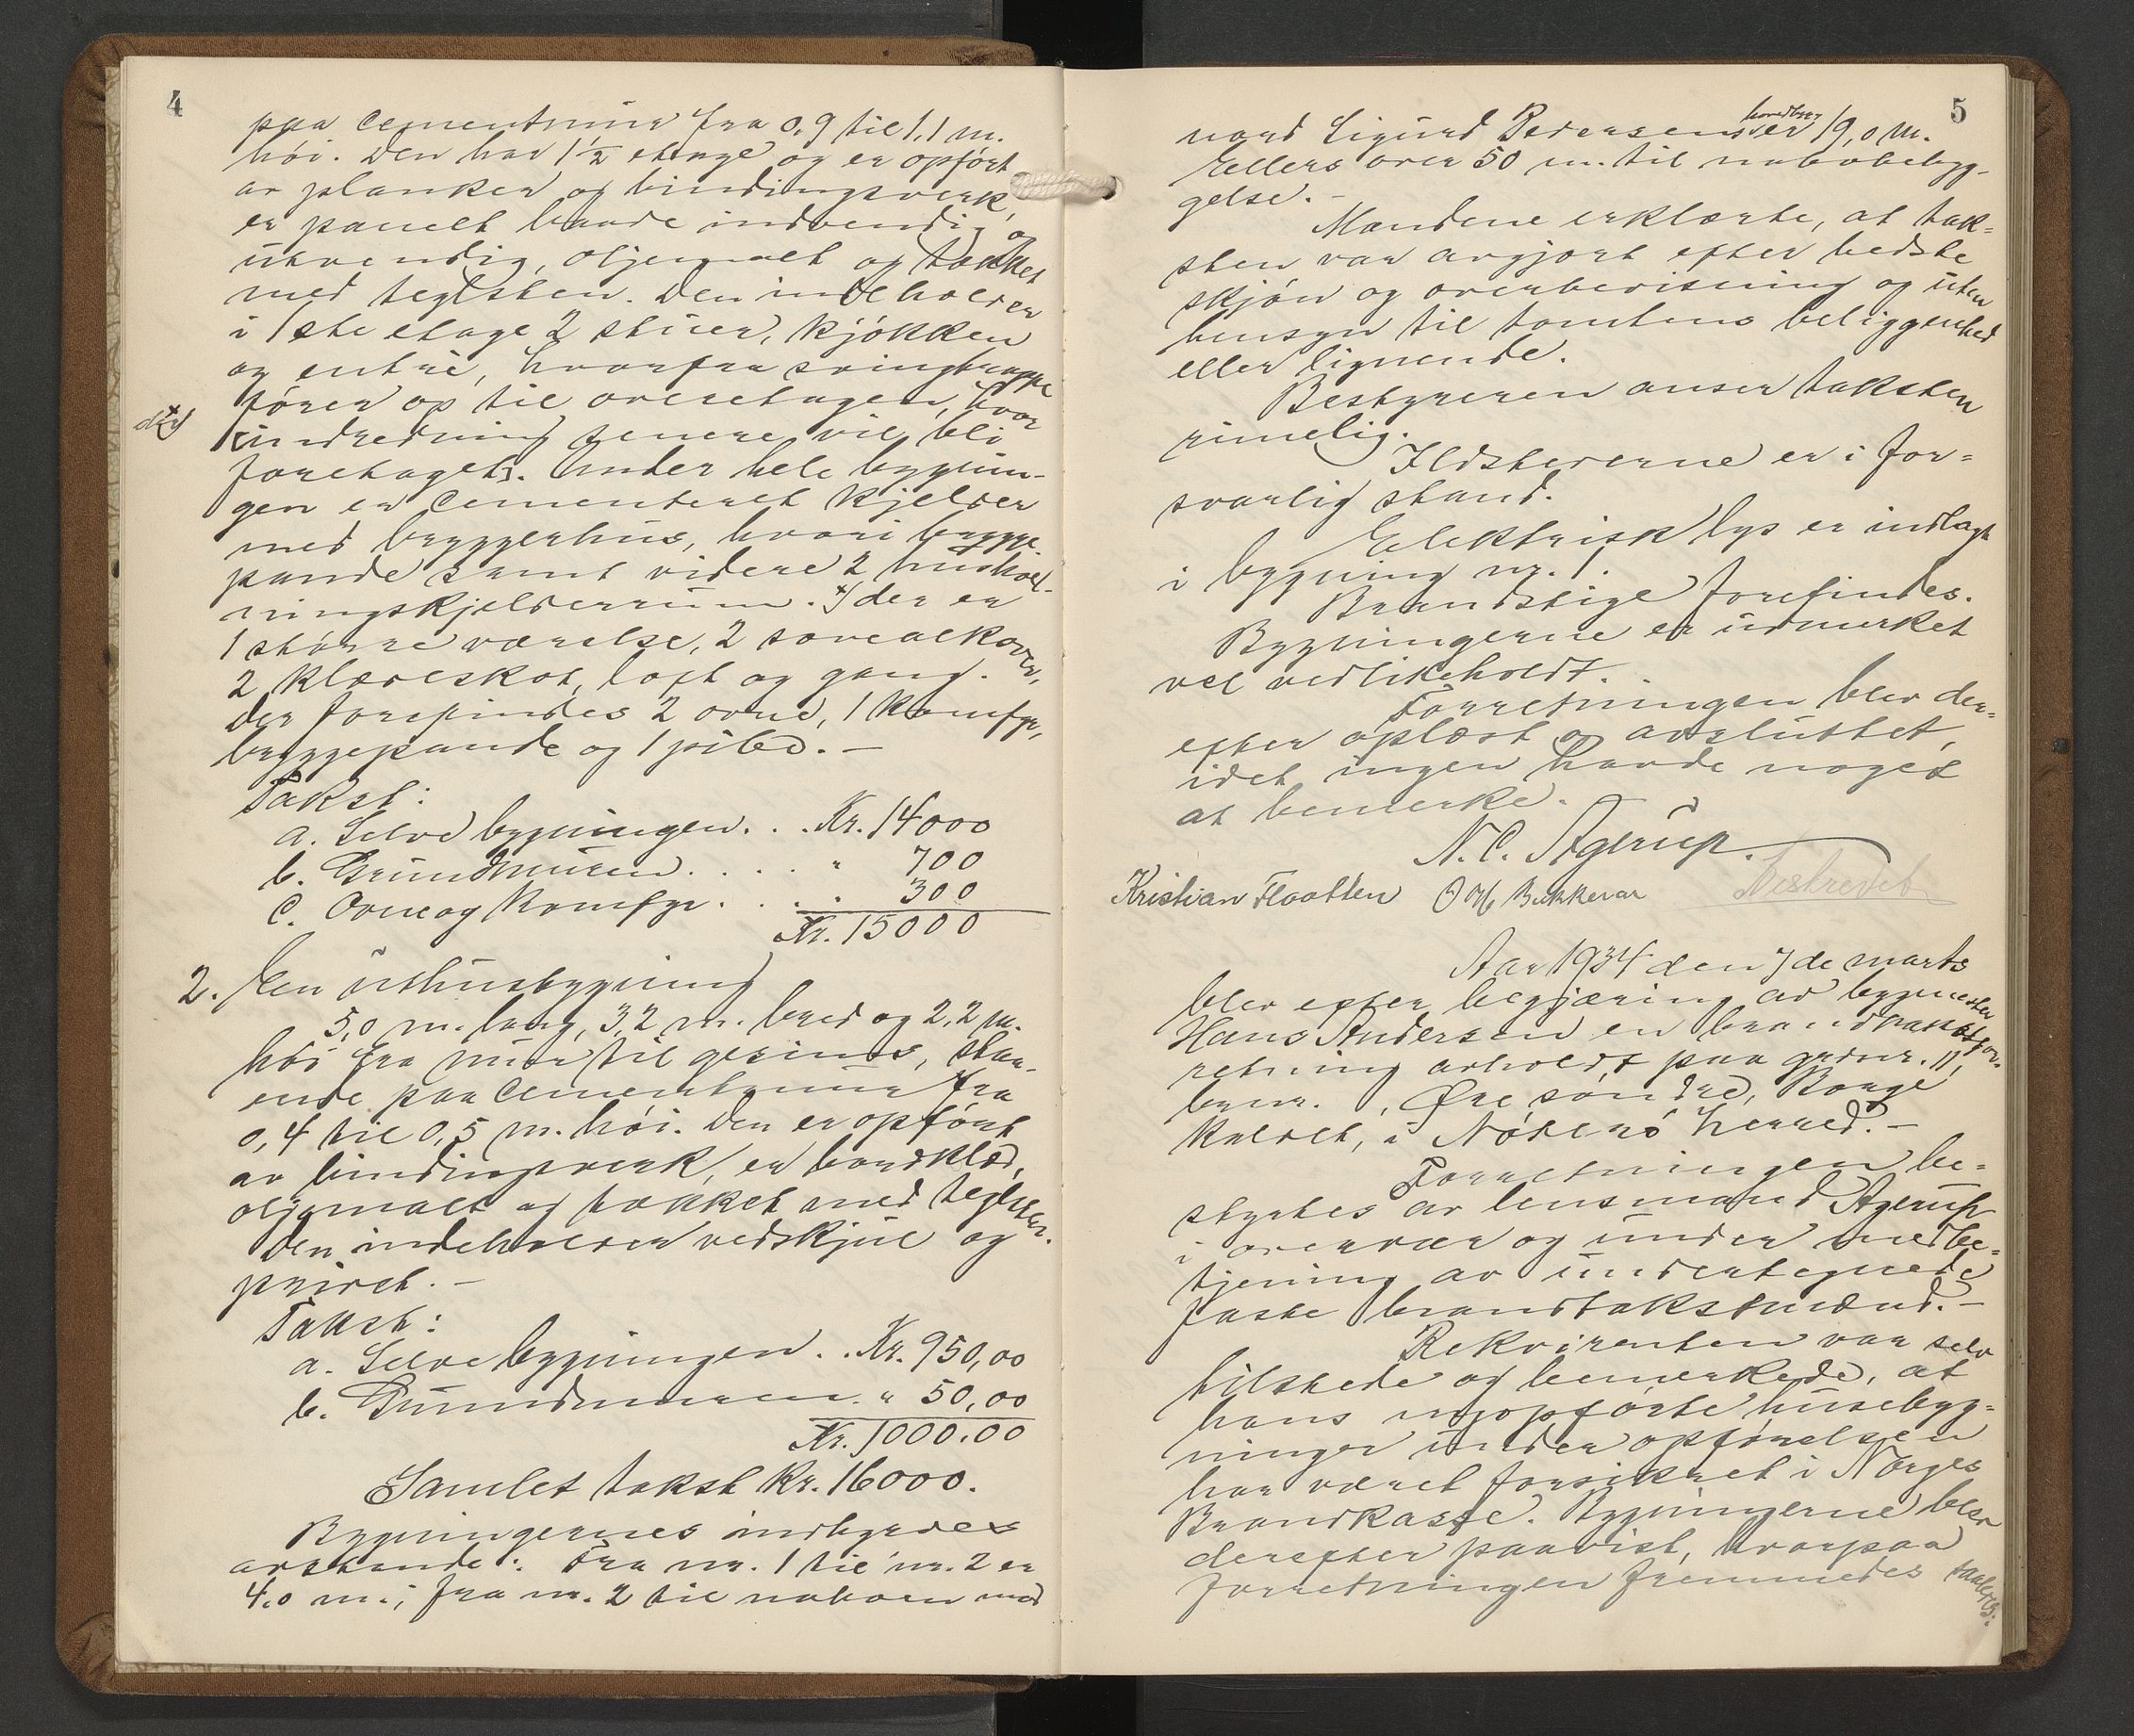 4
paa cementmur fra 0,9 til 1,1 m.
høi. Den har 1½ etage og er opført
av planker og bindingsverk,
er panelt baade indvendig og
utvendig, oljemalt og tækket
med teglsten. Den indeholder
i 1ste etage 2 stuer, kjøkken
og entré, hvorfra svingtrappe
fører op til overetagen, hvor
indredning senere vil bli
foretaget. Under hele bygnin-
gen er cementeret kjelder
med bryggerhus, hvori brygge-
pande samt videre 2 hushold-
ningskjelderrum. der er
1 større værelse, 2 sovealkover,
2 klædeskot, loft og gang.
Der forefindes 2 ovne, 1 komfyr,
bryggepande og 1 pibe. —
Takst:
a. Selve bygningen. . . Kr. 14000
b. Grundmuren. . . . . " 700
c. Ovne og Komfyr. . . . 300
Kr. 15000
2. En uthusbygning
5,0 m. lang, 3,2 m. bred og 2,2 m.
høi fra mur til gesims, staa-
ende paa cementmur fra
0,4 til 0,5 m. høi. Den er opført
av bindingsverk, er bordklæd,
oljemalt og tækket med teglsten.
Den indeholder vedskjul og
privet. —
Takst:
a. Selve bygningen. . Kr. 950,00
b. Grundmuren. " 50,00
Kr. 1000.00
Samlet takst Kr. 16000.
Bygningernes indbyrdes
avstande: Fra nr. 1 til nr. 2 er
4,0 m.; fra nr. 2 til naboen mod
5
nord Sigurd Pedersens er 19,0 m.
Ellers over 50 m. til nabobebyg-
gelse. —
Mændene erklærte, at tak=
sten var avgjort efter bedste
skjøn og overbevisning og uten
hensyn til tomtens beliggenhed
eller lignende.
Bestyreren anser taksten
rimelig.
Ildstederne er i for=
svarlig stand.
Elektrisk lys er indlagt
i bygning nr. 1.
Brandstige forefindes.
Bygningerne er udmerket
vel vedlikeholdt.
Forretningen blev der=
efter oplæst og avsluttet,
idet ingen havde noget
at bemerke.
N. C. Agerup.
Kristian Flaatten O Bakkevar
Aar 1934 den 7de marts
blev efter begjæring av bygmester
Hans Andersen en brandtakstfor-
retning avholdt paa gaardnr. 11,
brnr. , Øre søndre, Borge
kaldet, i Nøterø herred. —
Forretningen be=
styrtes av lensmand Agerup
i overvær og under medbe=
tjening av undertegnede
faste brandtakstmænd. —
Rekvirenten var selv
tilstede og bemerkede, at
hans nyopførte husebyg=
ninger under opførelsen
har været forsikret i Norges
Brandkasse. Bygningerne blev
derefter paavist, hvorpaa
forretningen fremmedes saaledes: